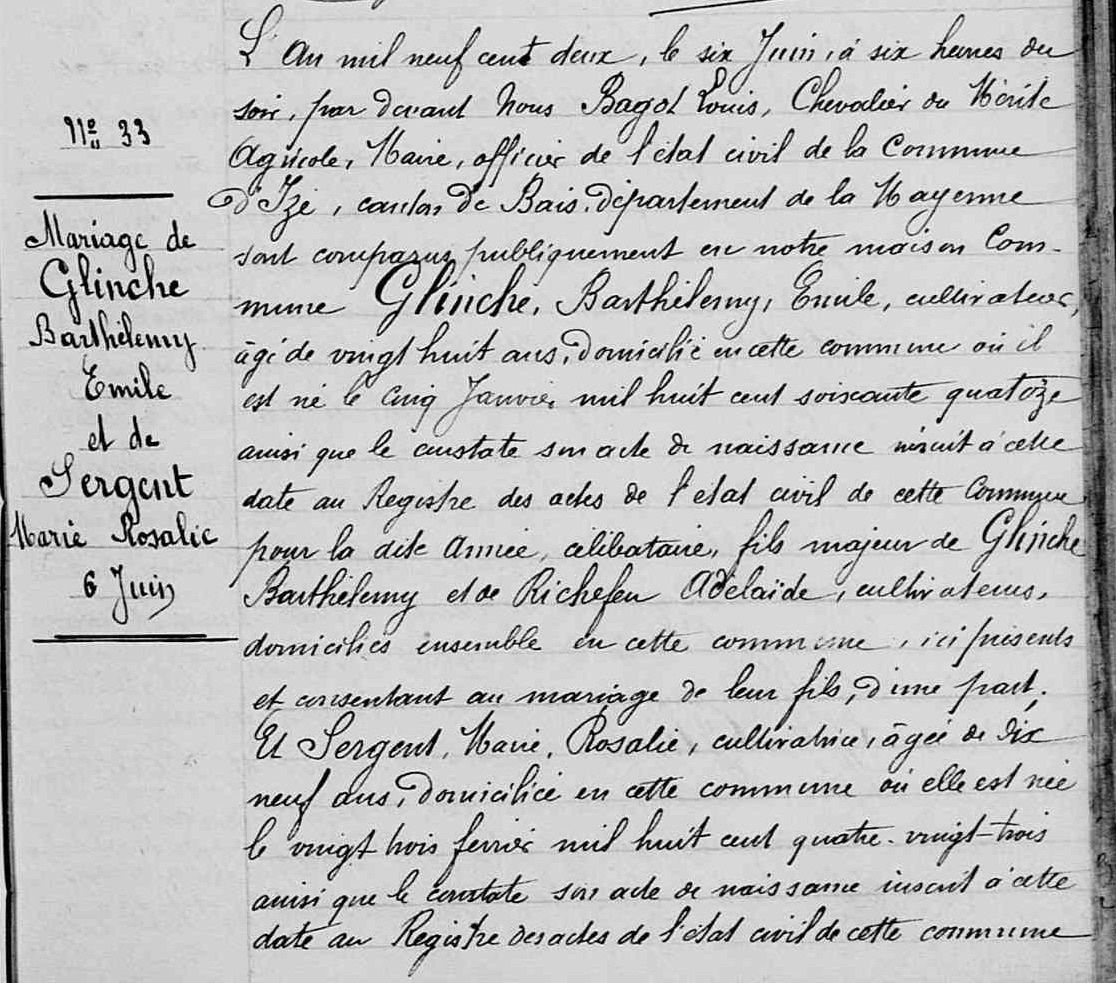 N° 33
Mariage de
Glinche
Barthélemy
Emile
et de
Sergent
Marie Rosalie
6 Juin
L'An mil neuf cent deux, le six Juin, à six heures du
soir, par devant Nous Bagot Louis, Chevalier du Mérite
Agricole, Maire, officier de l'état civil de la Commune
d'Izé, canton de Bais, département de la Mayenne
sont comparus publiquement en notre maison Com-
mune Glinche, Barthélemy, Emile, cultivateur,
âgé de vingt huit ans, domicilié en cette commune où il
est né le cinq Janvier mil huit cent soixante quatoze
ainsi que le constate son acte de naissance inscrit à cette
date au Registre des actes de l'état civil de cette Commune
pour la dite Année, célibataire, fils majeur de Glinche
Barthélemy et de Richefeu Adélaïde, cultivateurs,
domiciliés ensemble en cette commune, ici présents
et consentant au mariage de leur fils, d'une part.
Et Sergent, Marie, Rosalie, cultivatrice, âgée de dix
neuf ans, domiciliée en cette commune où elle est née
le vingt trois février mil huit cent quatre-vingt-trois
ainsi que le constate son acte de naissance inscrit à cette
date au Registre des actes de l'état civil de cette commune